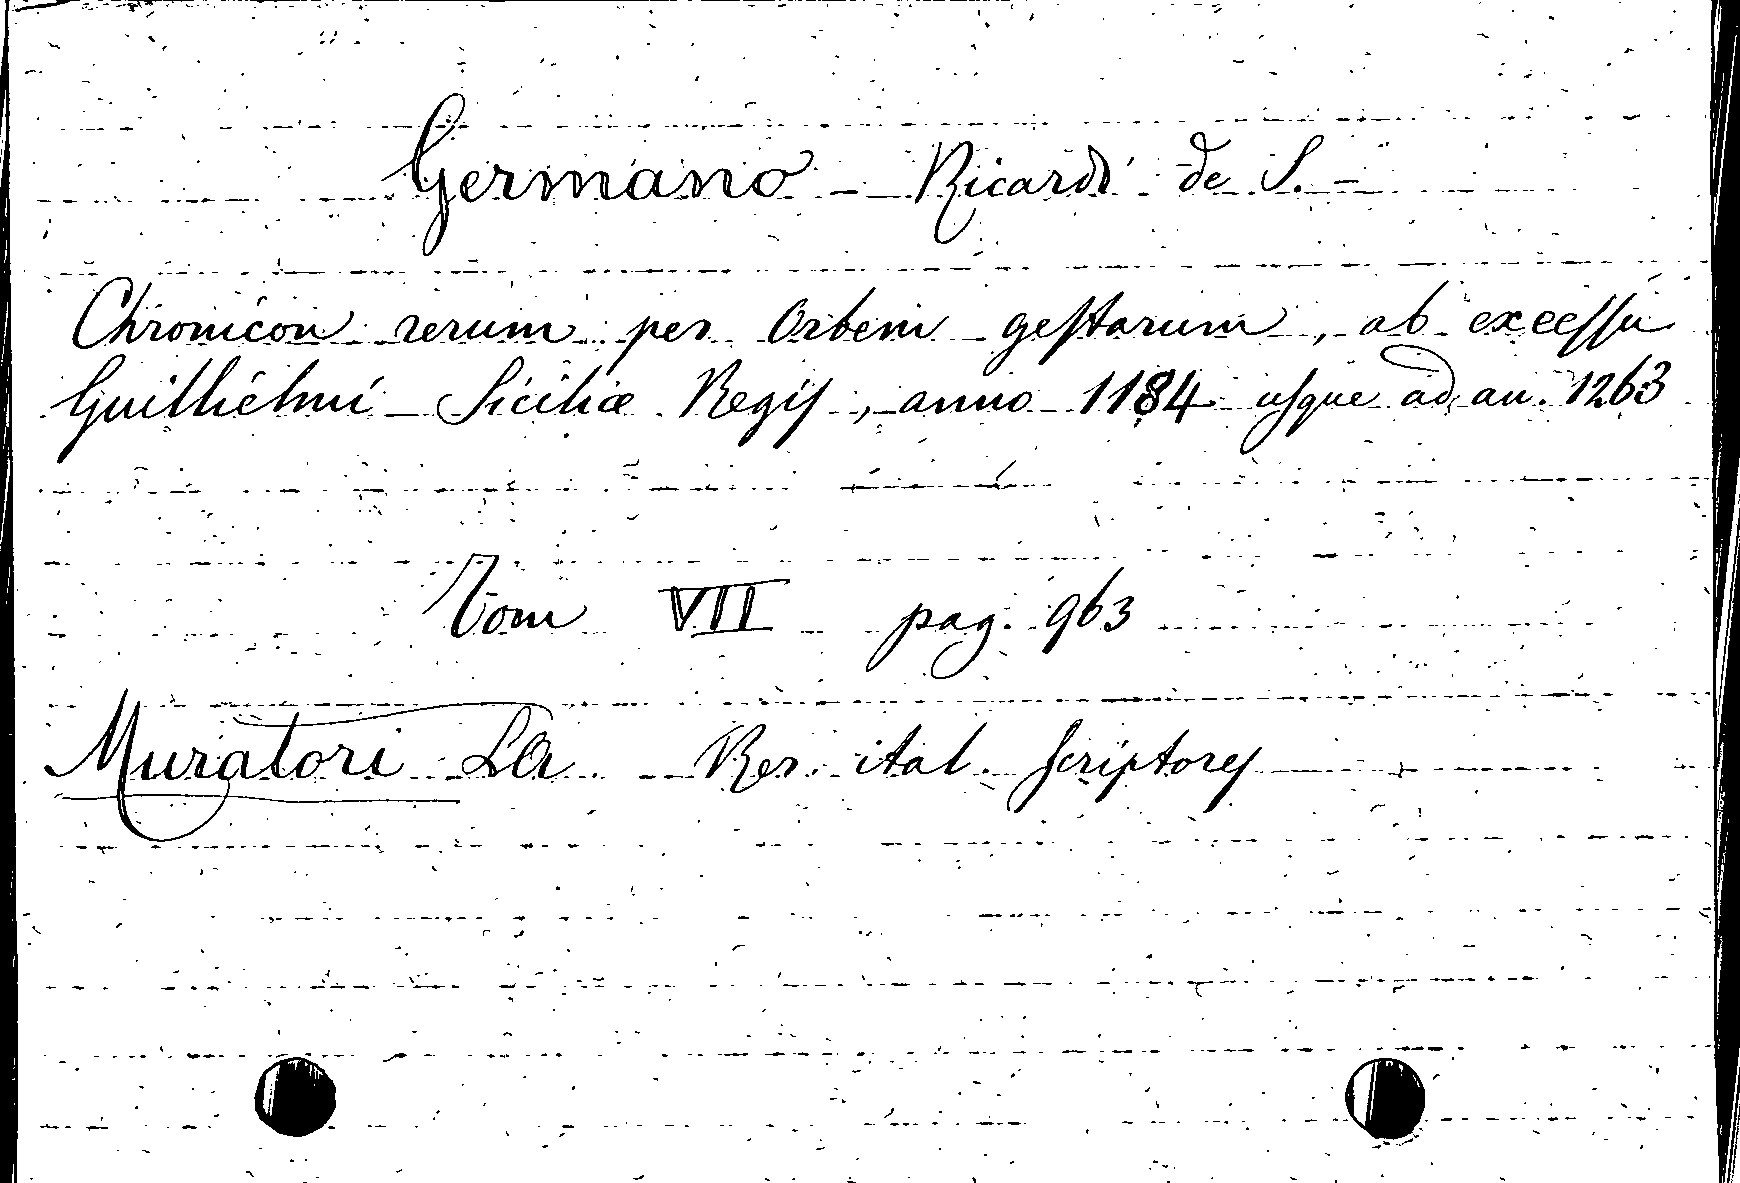 Germano - Ricardi de S. -
Chronicon rerum per Orbem gestarum, ab excessu
Guilhelmi Siciliæ Regis, anno 1184 usque ad an. 1263
Tom VII pag. 963
Muratori LA Rer. ital. scriptores